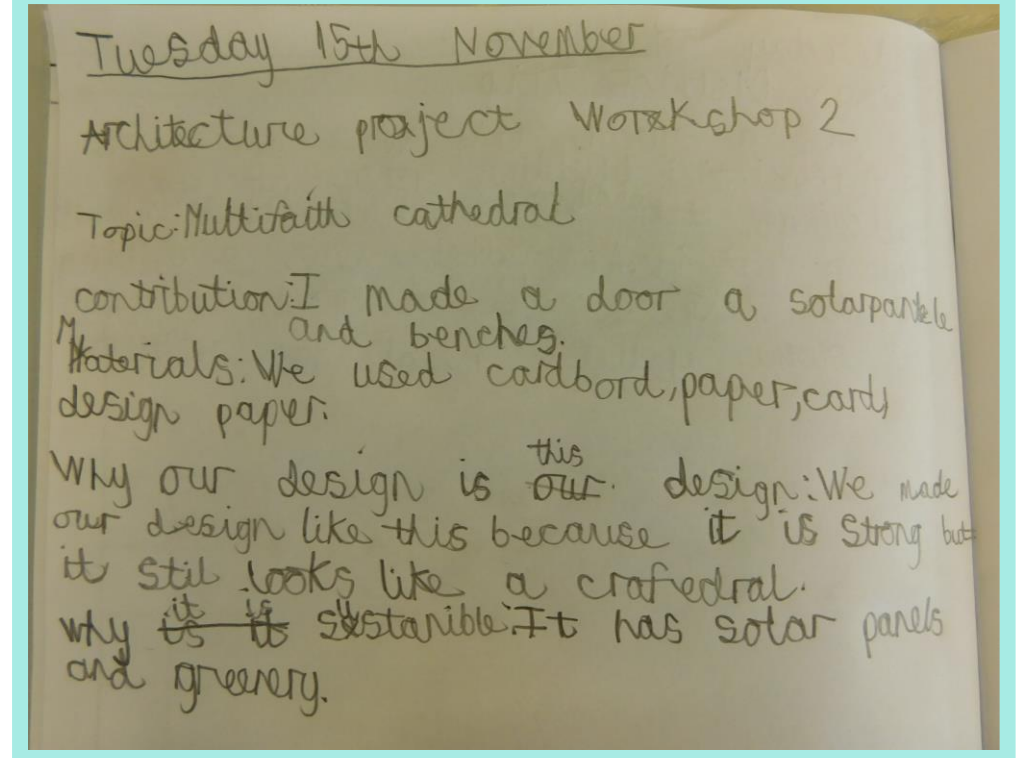 Tuesday 15th November
Architecture project Workshop 2
Topic: Multifaith cathedral
contribution: I made a door a solarpankle
and benches.
Materials: We used cardbord, paper, card,
design paper.
Why our design is this design: We made
our design like this because it is strong but
it stil looks like a crafedral.
why it is sustanible: It has solar panels
and greenery.